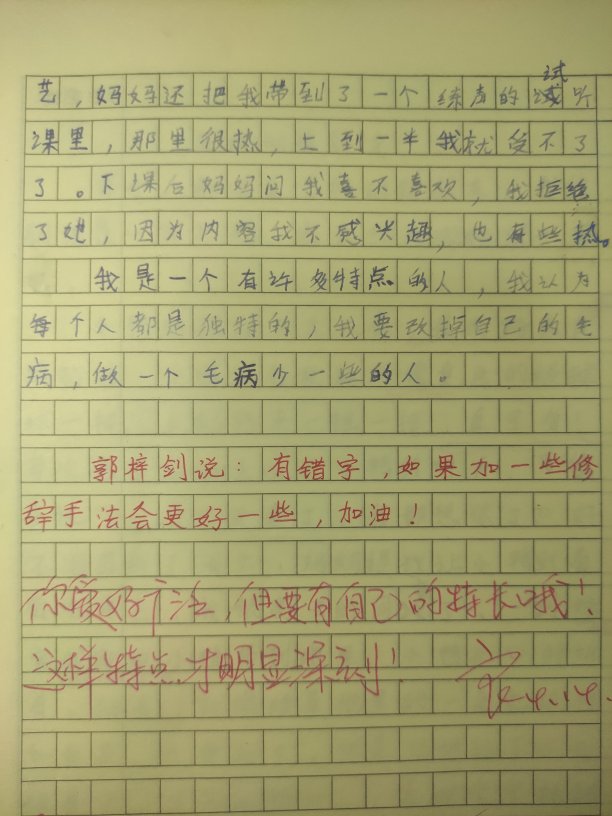 艺，妈妈还把我带到了一个练声的试听
课里，那里很热，上到一半我就受不了
了。下课后妈妈问我喜不喜欢，我拒绝
了她，因为内容我不感兴趣，也有些热。
我是一个有许多特点的人，我认为
每个人都是独特的，我要改掉自己的毛
病，做一个毛病少一些的人。
郭梓剑说：有错字，如果加一些修
辞手法会更好一些，加油！
你爱好广泛，但要有自己的特长哦！
这样特点才明显深刻！ 4.14.